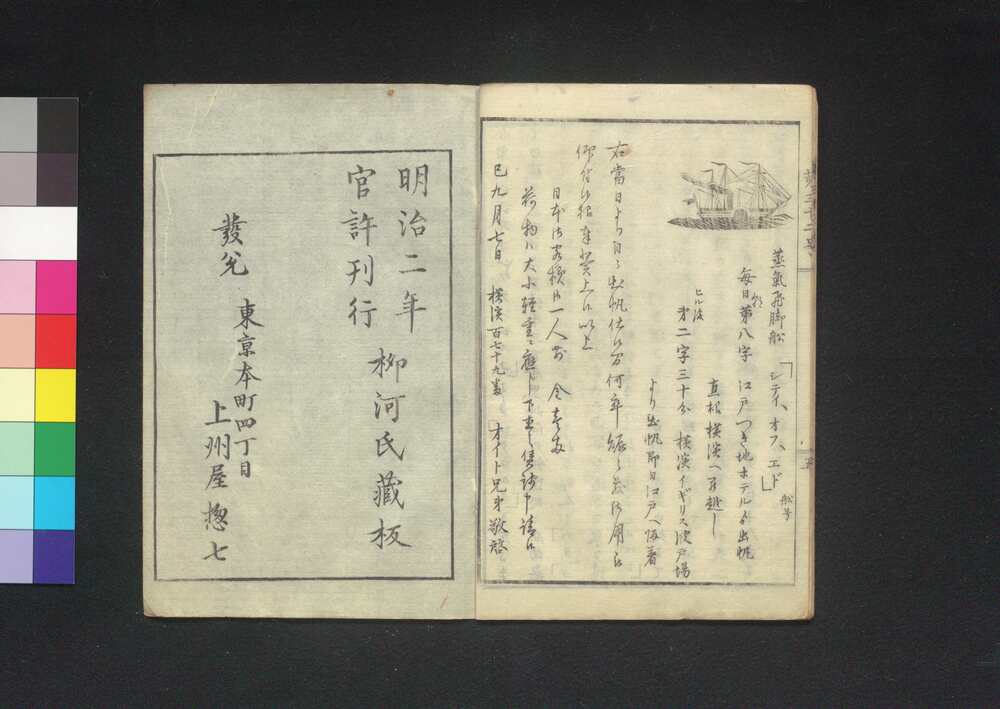 蒸氣飛脚舩
「シティ、オフ、エド」
舩号
毎日第八字 江戸つき地ホテルゟ出帆
朝
直様横濱へ引越し
ヒル後
第二字三十分 横濱イギリス波戸場
より出帆即日江戸へ
右當日より日々出帆仕候間何卒
仰付候様奉上候以上
日本御客様 一人前 金
荷物ハ大小軽重ニ應し下直ニ
巳九月七日 横濱百七十九番 オイト兄弟敬啓
五
明治二年 柳河氏藏板
官許刊行
發兌 東京本町四丁目
上州屋惣七